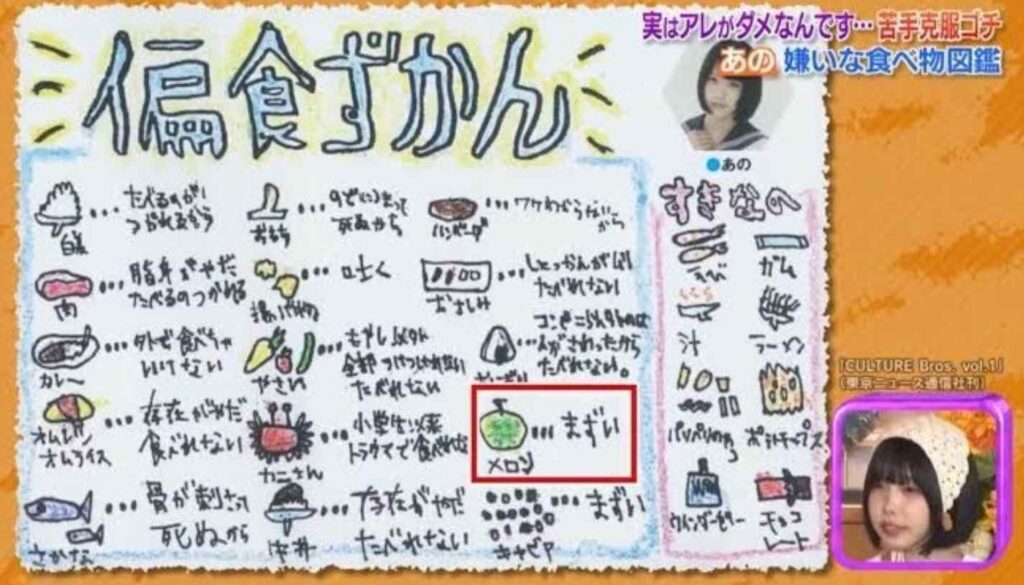 実はアレがダメなんです…苦手克服ゴチ
あの 嫌いな食べ物図鑑
偏食ずかん
あの
白菜
たべるのが
つかれるから
おもち
のどにつまって
死ぬから
ハンバーグ
ワケわからないから
肉
脂身がやだ
たべるのつかれる
揚げ物
吐く
おさしみ
たべれない
カレー
外で食べちゃ
いけない
やさい
もやし以外
全部
たべれない
コンビニ以外のは
人がさわったから
たべれない。
オムレツ
オムライス
存在がやだ
食べれない
カニさん
小学生以来
トラウマで食べれない
メロン
まずい
さかな
骨が刺さって
死ぬから
存在がやだ
たべれない
キャビア
まずい
すきなの
えび
ガム
汁
ラーメン
パリパリの
ポテトチップス
ウインダーゼリー
チョコ
レート
「CULTURE Bros. vol.1」
(東京ニュース通信社刊)